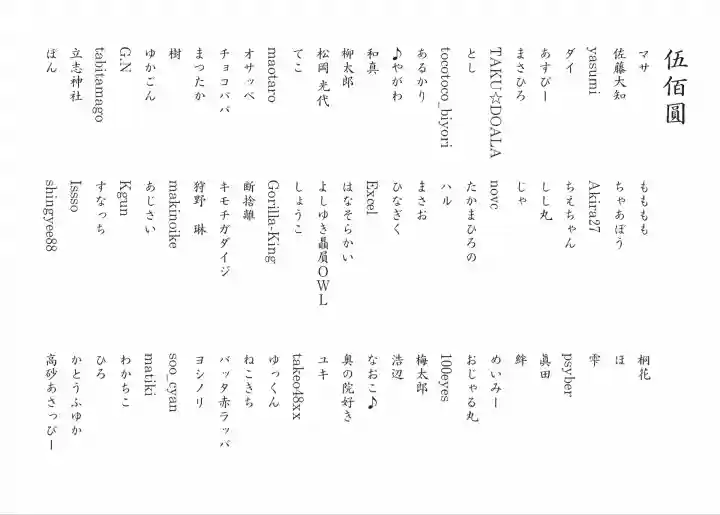 伍佰圓
マサ もももも 桐花
佐藤大知 ちゃあぼう ほ
yasumi Akira27 雫
ダイ ちえちゃん psyber
あすぴー しし丸 眞田
まさひろ じゃ 鉾
TAKU☆DOALA novc めいみー
とし たかまひろの おじゃる丸
tocotoco_biyori ハル 100eyes
あるかり まさお 梅太郎
♪やがわ ひなぎく 浩辺
和真 Excel なおこ♪
柳太郎 はなそらかい 奥の院好き
松岡 光代 よしゆき贔屓OWL ユキ
てこ しょうこ takeo48xx
maotaro Gorilla-King ゆっくん
オサッベ 断捨離 ねこきち
チョコパパ キモチガダイジ バッタ赤ラッパ
まつたか 狩野 琳 ヨシノリ
樹 makinoike soo_cyan
ゆかこん あじさい matiki
G.N Kgun わかちこ
tabitamago すなっち ひろ
立志神社 Issso かとうふゆか
ぽん shingyee88 高砂あさっぴー